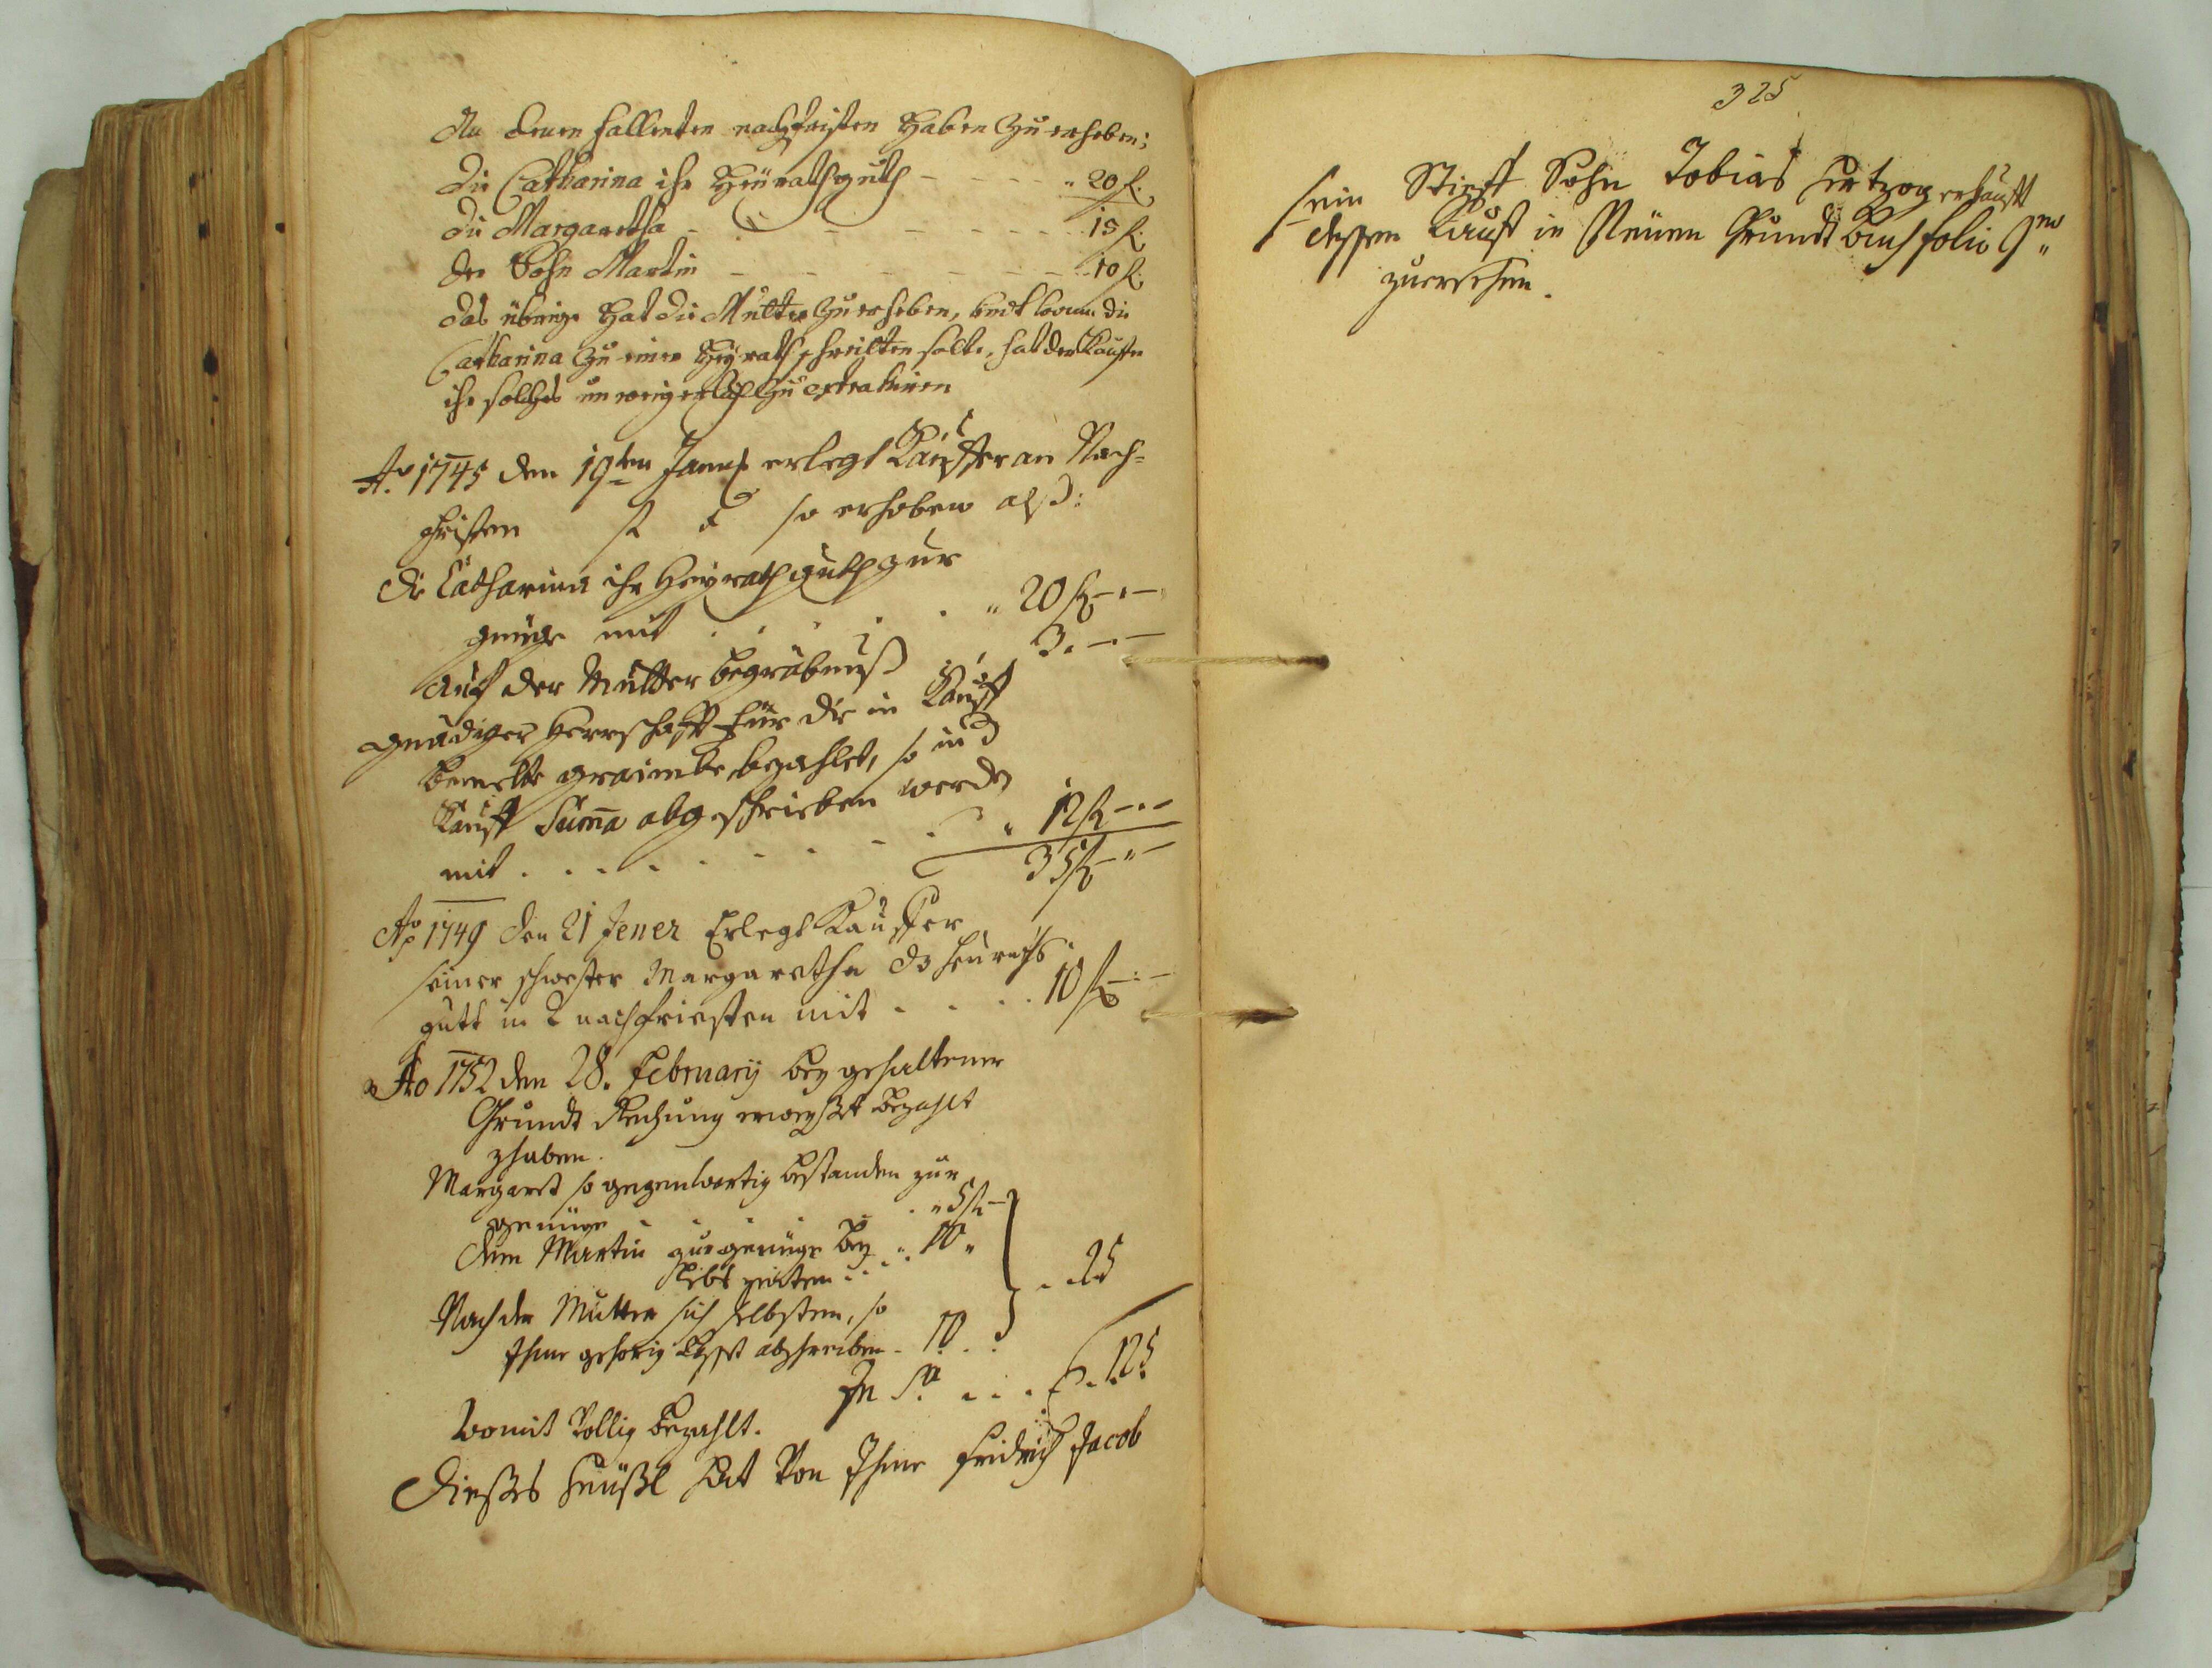 An denen fallenden nachfristen haben zu erheben;
die Catharina ihr Heürathguth - - - - " 20 f.
die Margaretha - - - - - - - 15 f.
der Sohn Martin - - - - - - - 10 f.
das übrige hat die Mutter zu erheben, undt wann die
Catharina zu einer Heyrath schreitten solte, hat der Kauffer
ihr solches unweigerlich zu extradiren
Ao. 1745 den 19ten erlegt Kauffer an Nach-
fristen so erhoben alß:
die Catharina ihr Heyrathguth zur
genüge mit . . . . . " 20 f - " -
auf der Mutter begräbnuß . , 3 . - . -
gnädiger Herrschafft für die in Kauff
bemelte bezahlet, so in
Kauff Suma abgeschrieben werden
mit . . . . . . . . . " 12 f - " -
35 f - " -
Ao 1749 den 21 Jener Erlegt Kauffer
seiner schwester Margaretha dz Heüraths
gutt in 2 nachfriesten mit . . . . 10 f - . -
Ao 1752 den 28. February bey gehaltener
Grundt Rechnung erweyßet bezahlt
zhaben.
Margaret so gegenwertig bestanden zur
genüge . . . . . " 5 f -
dem Martin zur genüge bey " 10 "
Lebs zeiten . . .
Nach der Mutter sich selbsten, so
Ihme gehörig Lasset abschreiben . 10 . . . . 25
In Sa . . . . 125
Womit Völlig bezahlt.
Dießes Heüßl hat Von Ihme Fridrich Jacob
325
sein Stieff Sohn Tobias Hertzog erkaufft
dessen Kauff in Neüen Grundt Buch folio 9no
zuersehen.